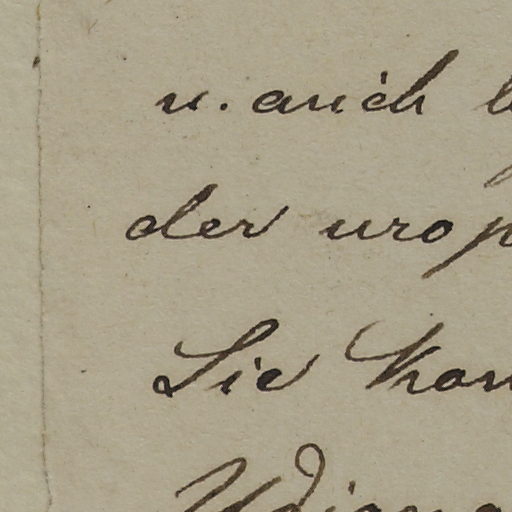 u. auch
der urop
Sie kan